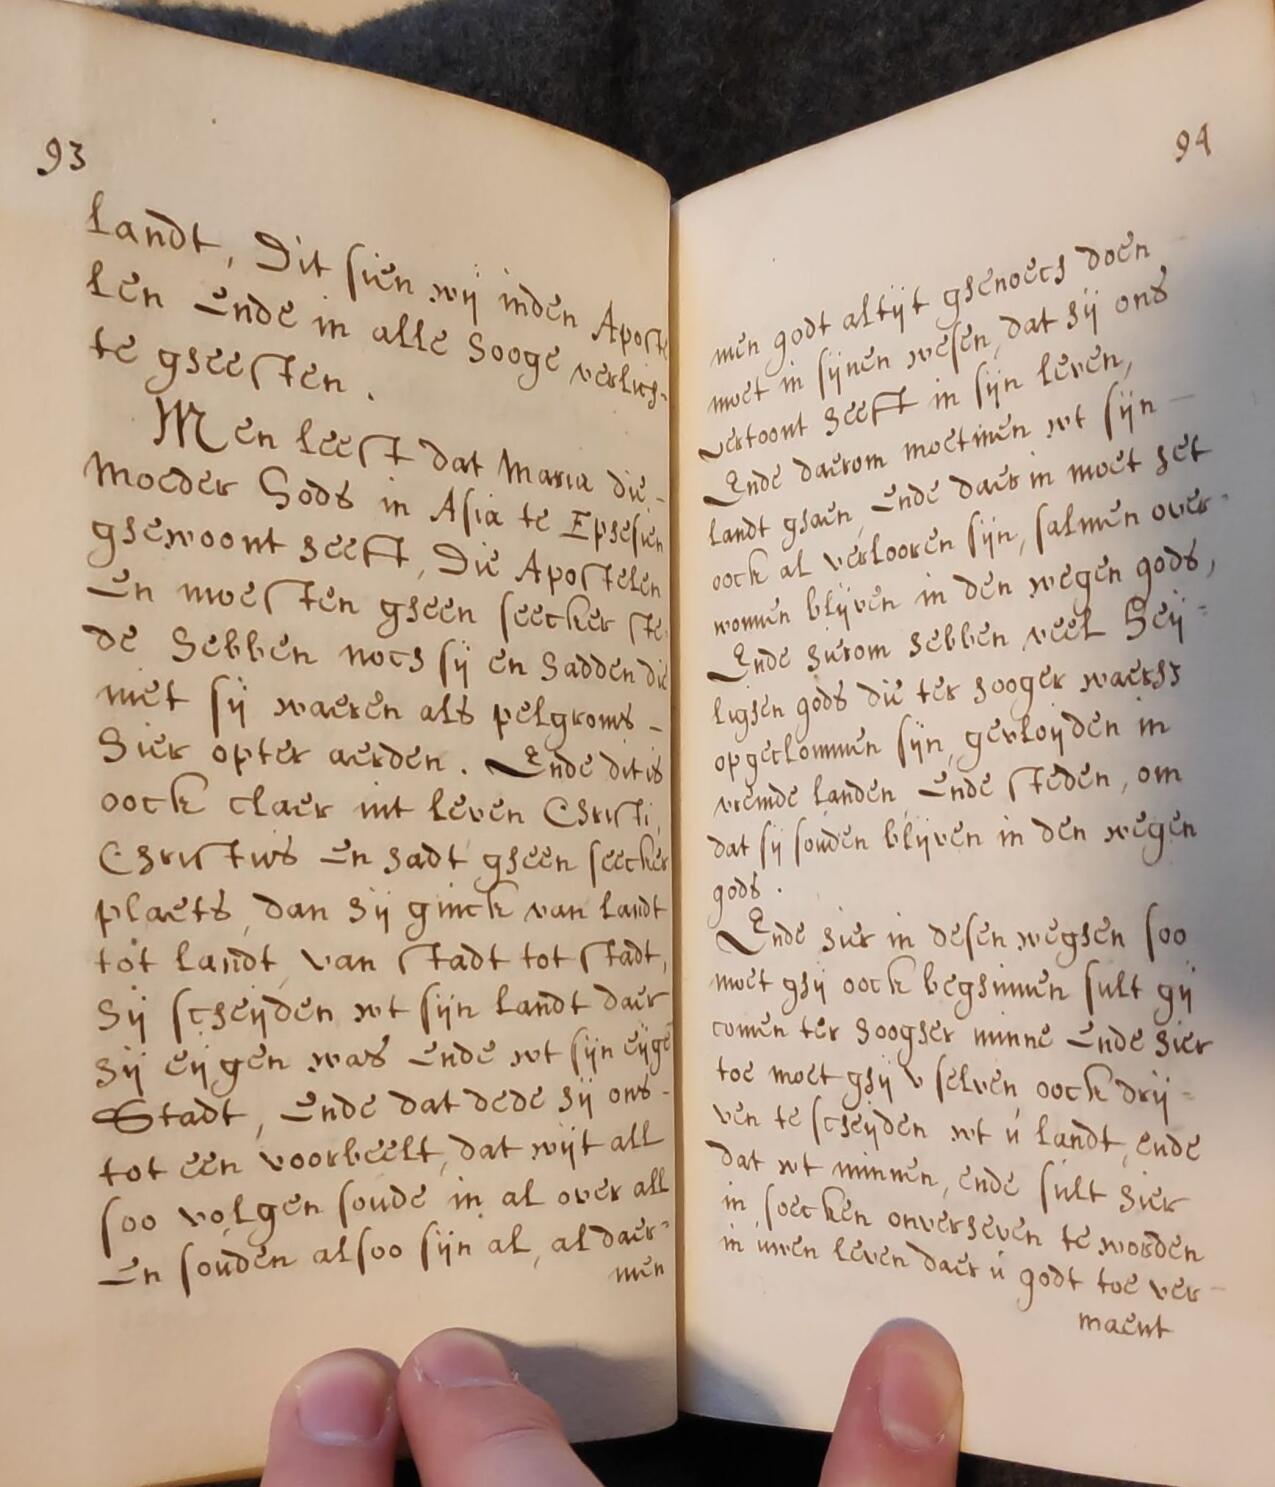 93
landt, Dit sien wij inden Aposte
len Ende in alle hooge verlich-
te gheesten.
Men leest dat Maria die -
Moeder Gods in Asia te Ephesien
ghewoont heeft, Die Apostelen
En moesten gheen seecker ste
de hebben noch sij en hadden die
niet sij waeren als pelgroms -
hier opter aerden. Ende dit is
oock claer int leven Christi,
Christus En hadt gheen seecker
plaets, dan hij ginck van landt
tot landt, van stadt tot stadt,
hij scheijden wt sijn landt daer
hij eijgen was Ende wt sijn eijge
Stadt, Ende dat dede hij ons -
tot een voorbeelt, dat wijt all
soo volgen soude in al over all
En souden alsoo sijn al, al daer-
men
94
men godt altijt ghenoech doen
moet in sijnen wesen, dat hij ons
vertoont heeft in sijn leven,
Ende daerom moetmen wt sijn -
landt ghaen, Ende daer in moet het
oock al verlooren sijn, salmen over-
wonnen blijven in den wegen gods,
Ende hierom hebben veel Heij-
lighen gods die ter hooger waerhz
opgeclommen sijn, gevloijden in
vremde landen Ende steden, om
dat sij souden blijven in den wegen
gods.
Ende hier in desen weghen soo
moet ghij oock beghinnen sult gij
comen ter hoogher minne Ende hier
toe moet ghij v selven oock drij-
ven te scheijden wt u landt, ende
dat wt minnen, ende sult hier
in soecken onverheven te worden
in uwen leven daer u godt toe ver-
maent